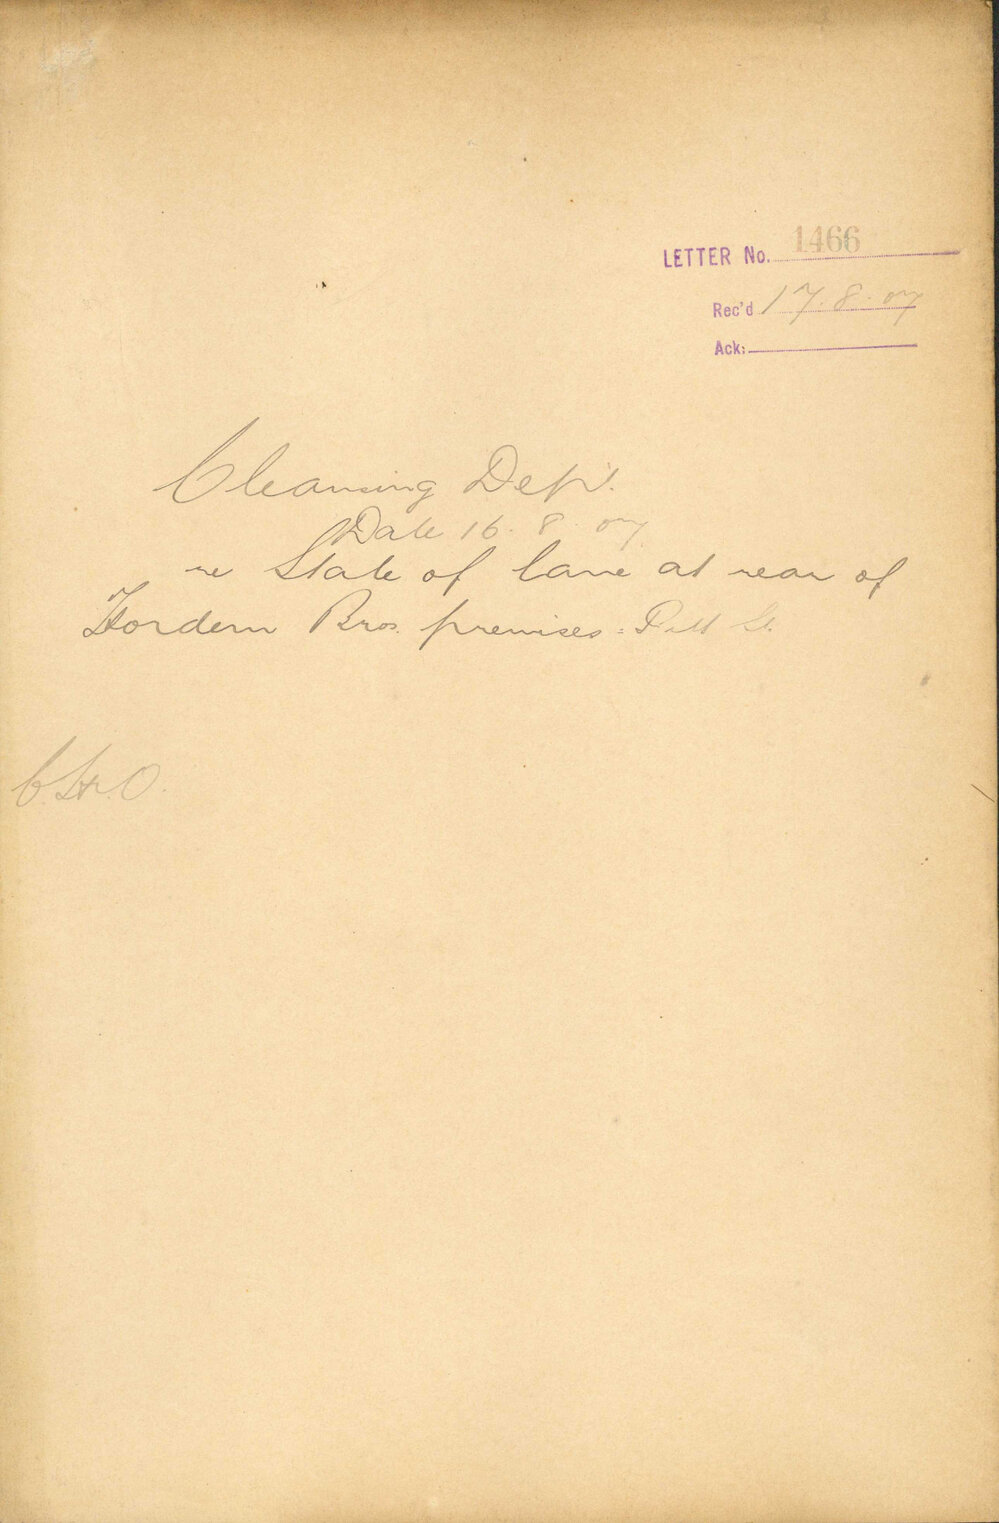 LETTER No. 1466
Rec'd 17.8.07
Ack:
Cleansing Dep't.
Date 16.8.07.
re State of lane at rear of
Hordern Bros. premises: Pitt St.
C.H.O.